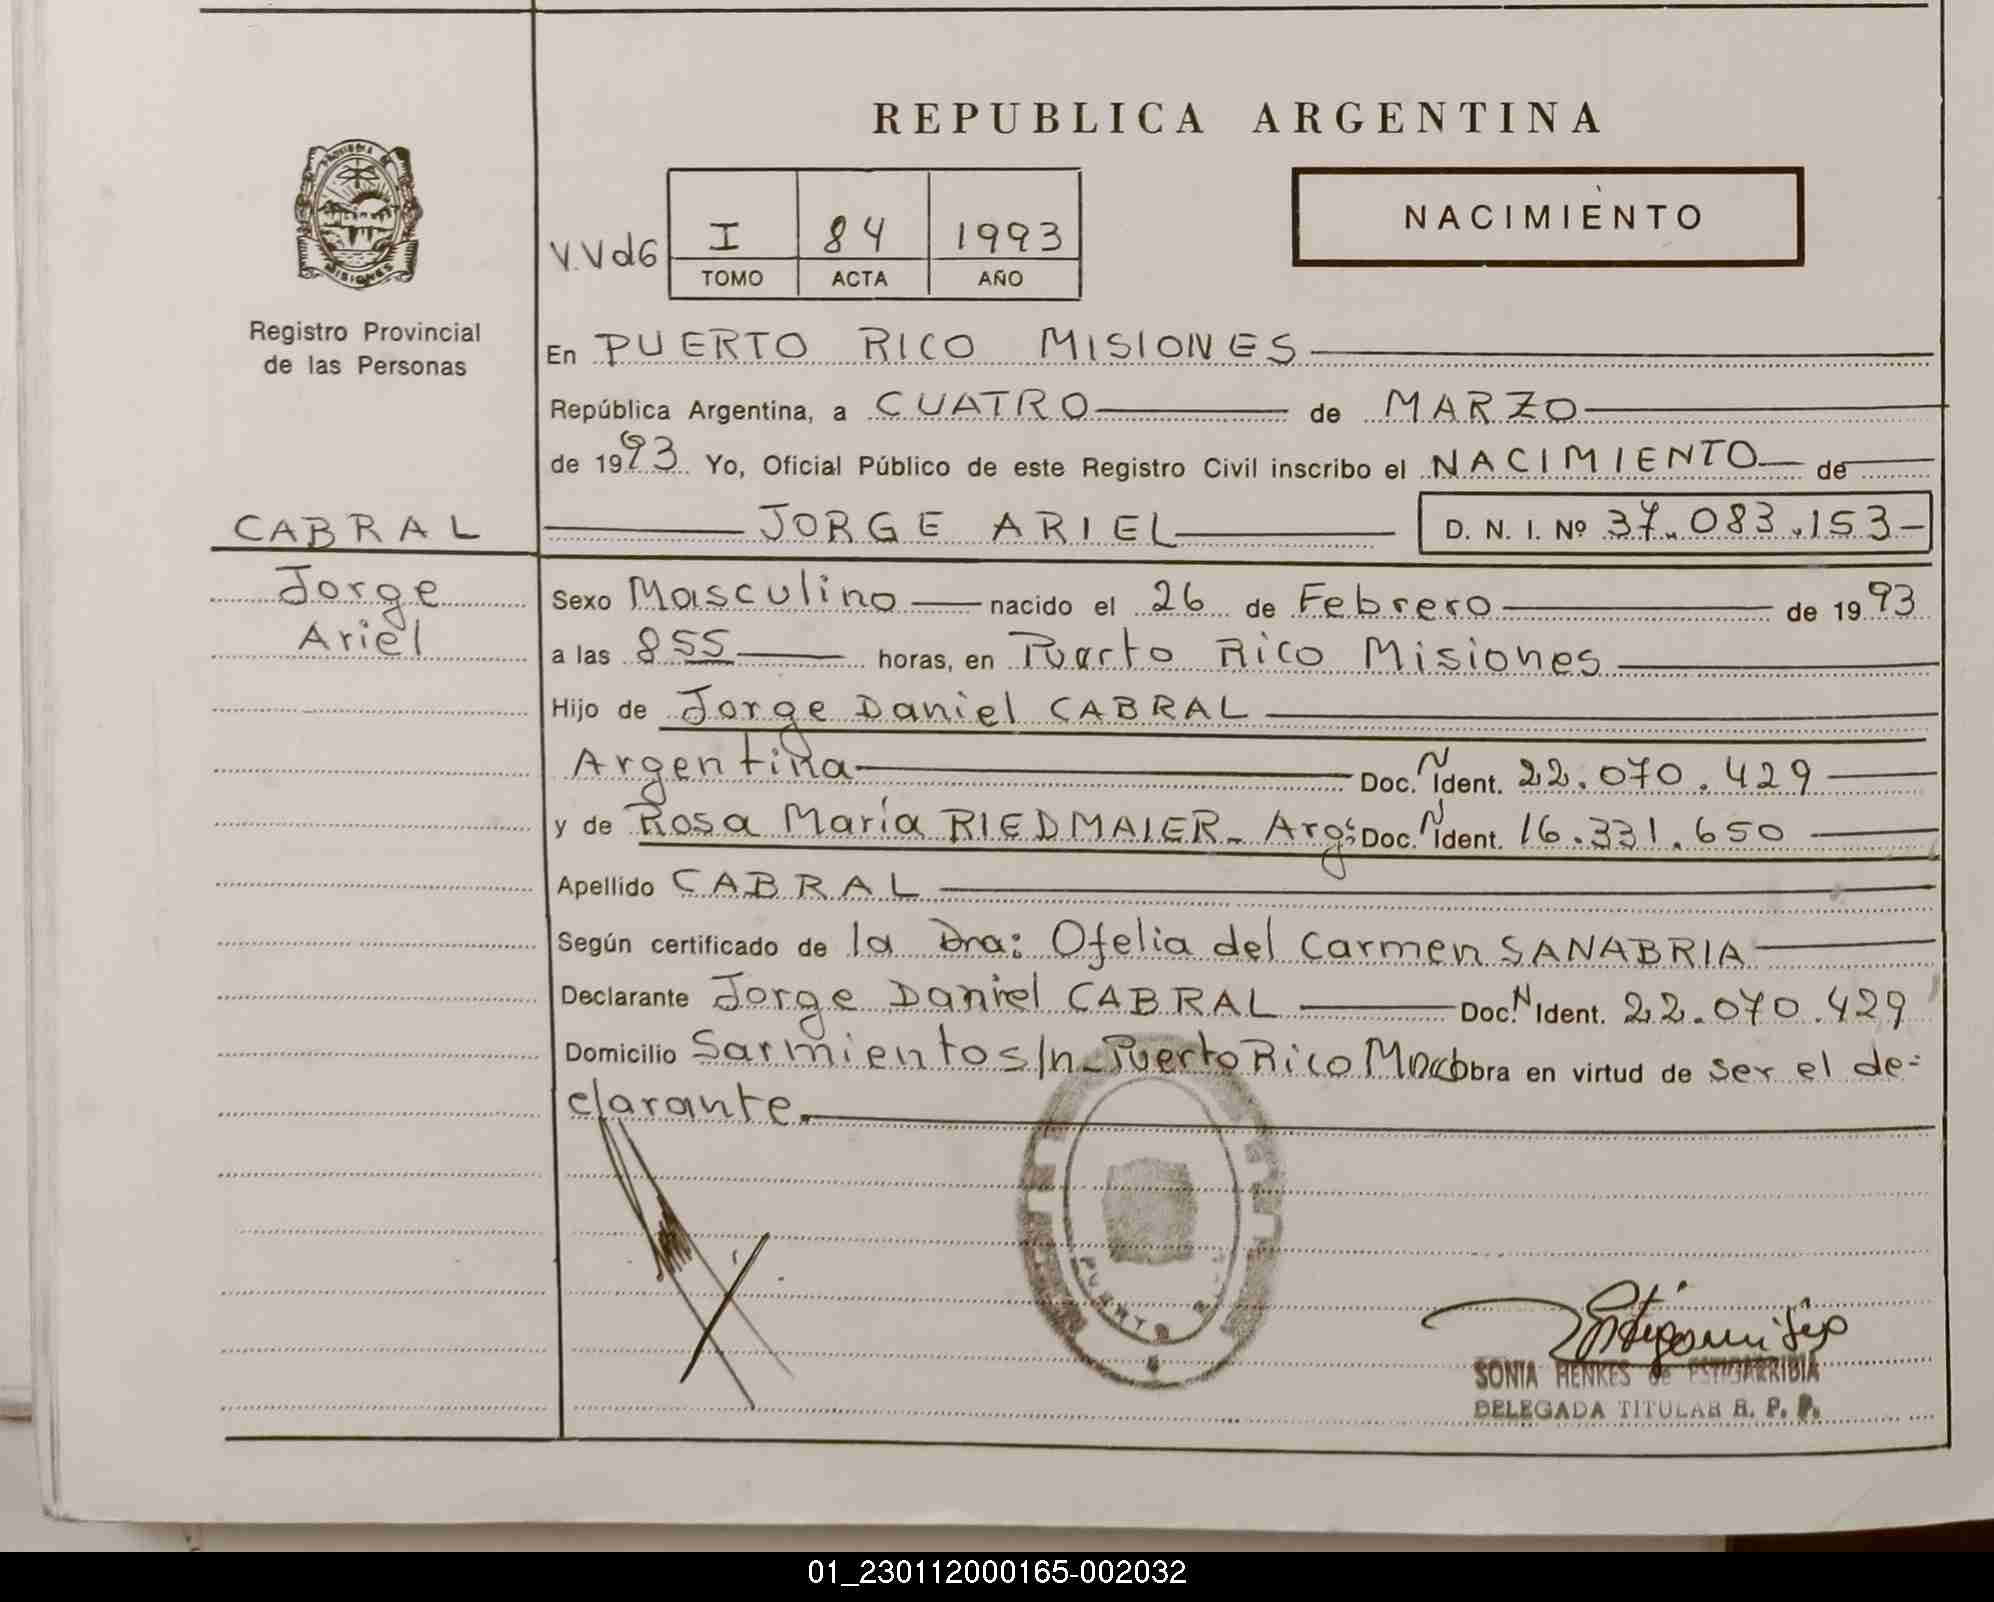 REPUBLICA ARGENTINA
PROVINCIA DE
MISIONES
Registro Provincial
de las Personas
V.Vd6
I 84 1993
TOMO ACTA AÑO
NACIMIENTO
En PUERTO RICO MISIONES
República Argentina, a CUATRO de MARZO
de 1993 Yo, Oficial Público de este Registro Civil inscribo el NACIMIENTO de
CABRAL
JORGE ARIEL D. N. I. Nº 37.083.153
Jorge
Ariel
Sexo Masculino nacido el 26 de Febrero de 1993
a las 855 horas, en Puerto Rico Misiones
Hijo de Jorge Daniel CABRAL
Argentina Doc. N Ident. 22.070.429
y de Rosa María RIEDMAIER - Arg: Doc. N Ident. 16.331.650
Apellido CABRAL
Según certificado de la Dra: Ofelia del Carmen SANABRIA
Declarante Jorge Daniel CABRAL Doc. N Ident. 22.070.429
Domicilio Sarmiento s/n - Puerto Rico Mnes obra en virtud de ser el de-
clarante.
PUERTO
SONIA HENKES de ESTIGARRIBIA
DELEGADA TITULAR R. P. P.
01_230112000165-002032